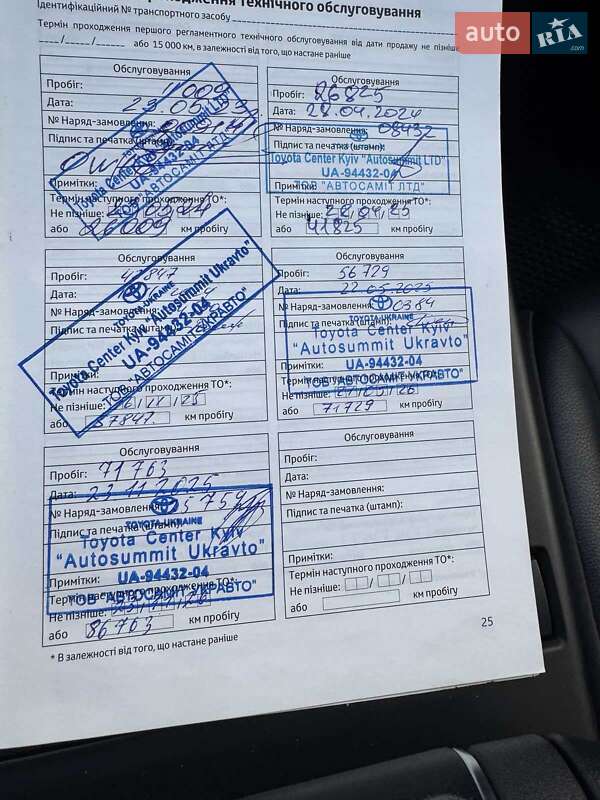 ходження технічного обслуговування
Ідентифікаційний № транспортного засобу
Термін проходження першого регламентного технічного обслуговування від дати продажу не пізніше
__/__/____ або 15 000 км, в залежності від того, що настане раніше
auto RIA.com
Обслуговування
Пробіг:
Дата: 23.05
№ Наряд-замовлення
Підпис та печатка (штамп)
Toyota Center Kyiv "Autosummit LTD"
UA-94432-04
ТОВ "АВТОСАМІТ ЛТД"
Примітки:
Термін наступного проходження ТО*:
Не пізніше:
або 26009 км пробігу
Обслуговування
Пробіг: 26825
Дата: 22.04.2024
№ Наряд-замовлення: 08432
Підпис та печатка (штамп):
Toyota Center Kyiv "Autosummit LTD"
UA-94432-04
ТОВ "АВТОСАМІТ ЛТД"
Примітки:
Термін наступного проходження ТО*:
Не пізніше: 22/04/25
або 41825 км пробігу
Обслуговування
Пробіг: 42847
Дата:
№ Наряд-замовлення
Підпис та печатка (штамп)
TOYOTA-UKRAINE
Toyota Center Kyiv "Autosummit Ukravto"
UA-94432-04
ТОВ "АВТОСАМІТ УКРАВТО"
Примітки:
Термін наступного проходження ТО*:
Не пізніше:
або 57847 км пробігу
Обслуговування
Пробіг: 56729
Дата: 22.05.2025
№ Наряд-замовлення: 0384
Підпис та печатка (штамп):
TOYOTA-UKRAINE
Toyota Center Kyiv
"Autosummit Ukravto"
Примітки:
UA-94432-04
Термін наступного проходження ТО*:
ТОВ "АВТОСАМІТ УКРАВТО"
Не пізніше:
або 71729 км пробігу
Обслуговування
Пробіг: 71763
Дата: 23.11.2025
№ Наряд-замовлення
TOYOTA-UKRAINE
Підпис та печатка (штамп):
Toyota Center Kyiv
"Autosummit Ukravto"
Примітки: UA-94432-04
Термін наступного проходження ТО*:
ТОВ "АВТОСАМІТ УКРАВТО"
Не пізніше:
або 86763 км пробігу
Обслуговування
Пробіг:
Дата:
№ Наряд-замовлення:
Підпис та печатка (штамп):
Примітки:
Термін наступного проходження ТО*:
Не пізніше:
або км пробігу
* В залежності від того, що настане раніше
25